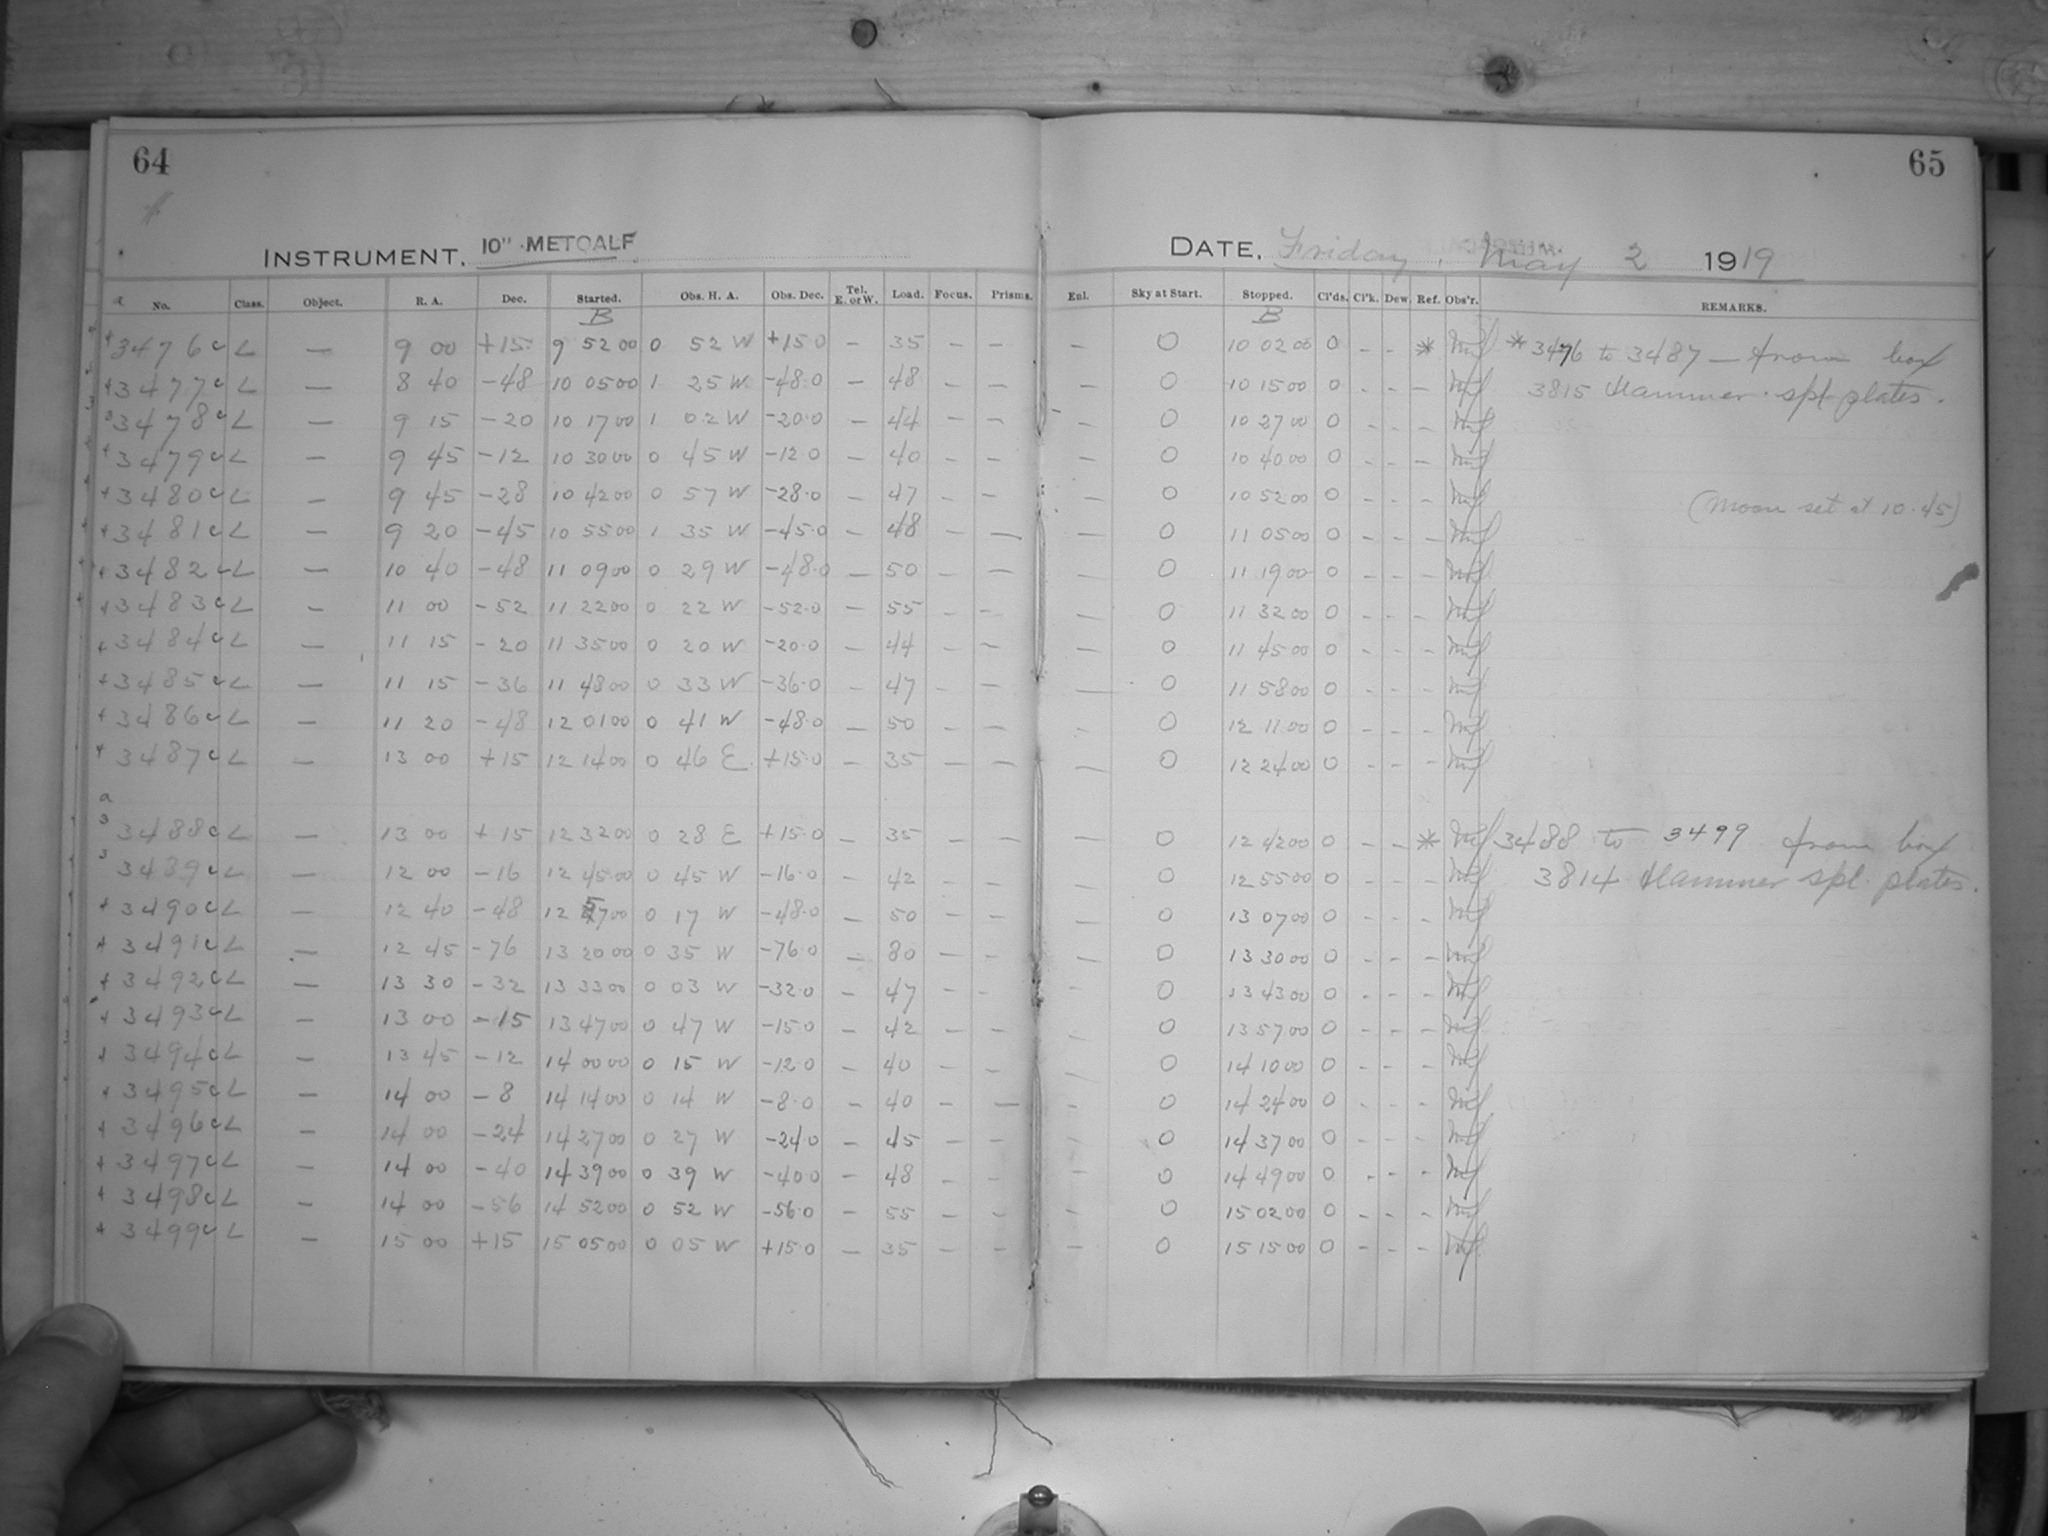 64
65
INSTRUMENT. 10" METCALF
DATE, Friday, May 2 1919
No. Class. Object. R. A. Dec. Started. Obs. H. A. Obs. Dec. Tel. E. or W. Load. Focus. Prisms. Enl. Sky at Start. Stopped. Cl'ds. Cl'k. Dew. Ref. Obs'r. REMARKS.
B B
3476 c L — 9 00 +15 9 52 00 0 52 W +15.0 — 35 — — — 0 10 02 00 0 - - * * 3476 to 3487 — from box
3477 c L — 8 40 -48 10 05 00 1 25 W -48.0 — 48 — — — 0 10 15 00 0 - - - 3815 Hammer spl plates.
3478 c L — 9 15 -20 10 17 00 1 02 W -20.0 — 44 — — — 0 10 27 00 0 - - -
3479 c L — 9 45 -12 10 30 00 0 45 W -12.0 — 40 — — — 0 10 40 00 0 - - -
3480 c L — 9 45 -28 10 42 00 0 57 W -28.0 — 47 — — — 0 10 52 00 0 - - - (Moon set at 10.45)
3481 c L — 9 20 -45 10 55 00 1 35 W -45.0 — 48 — — — 0 11 05 00 0 - - -
3482 c L — 10 40 -48 11 09 00 0 29 W -48.0 — 50 — — — 0 11 19 00 0 - - -
3483 c L — 11 00 -52 11 22 00 0 22 W -52.0 — 55 — — — 0 11 32 00 0 - - -
3484 c L — 11 15 -20 11 35 00 0 20 W -20.0 — 44 — — — 0 11 45 00 0 - - -
3485 c L — 11 15 -36 11 48 00 0 33 W -36.0 — 47 — — — 0 11 58 00 0 - - -
3486 c L — 11 20 -48 12 01 00 0 41 W -48.0 — 50 — — — 0 12 11 00 0 - - -
3487 c L — 13 00 +15 12 14 00 0 46 E +15.0 — 35 — — — 0 12 24 00 0 - - -
3488 c L — 13 00 +15 12 32 00 0 28 E +15.0 — 35 — — — 0 12 42 00 0 - - * 3488 to 3499 from box
3489 c L — 12 00 -16 12 45 00 0 45 W -16.0 — 42 — — — 0 12 55 00 0 - - - 3814 Hammer spl. plates.
3490 c L — 12 40 -48 12 57 00 0 17 W -48.0 — 50 — — — 0 13 07 00 0 - - -
3491 c L — 12 45 -76 13 20 00 0 35 W -76.0 — 80 — — — 0 13 30 00 0 - - -
3492 c L — 13 30 -32 13 33 00 0 03 W -32.0 — 47 — — — 0 13 43 00 0 - - -
3493 c L — 13 00 -15 13 47 00 0 47 W -15.0 — 42 — — — 0 13 57 00 0 - - -
3494 c L — 13 45 -12 14 00 00 0 15 W -12.0 — 40 — — — 0 14 10 00 0 - - -
3495 c L — 14 00 -8 14 14 00 0 14 W -8.0 — 40 — — — 0 14 24 00 0 - - -
3496 c L — 14 00 -24 14 27 00 0 27 W -24.0 — 45 — — — 0 14 37 00 0 - - -
3497 c L — 14 00 -40 14 39 00 0 39 W -40.0 — 48 — — — 0 14 49 00 0 - - -
3498 c L — 14 00 -56 14 52 00 0 52 W -56.0 — 55 — — — 0 15 02 00 0 - - -
3499 c L — 15 00 +15 15 05 00 0 05 W +15.0 — 35 — — — 0 15 15 00 0 - - -